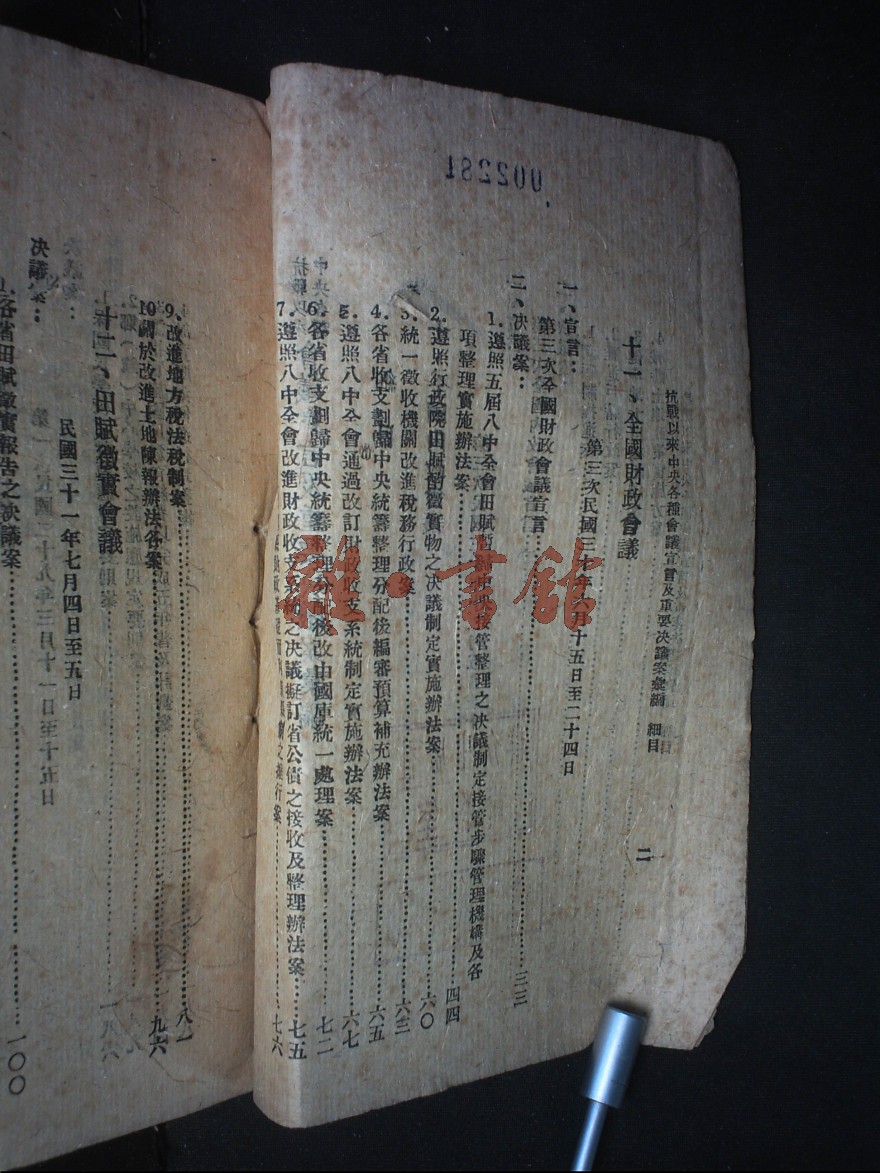 002281
抗戰以來中央各種會議宣言及重要決議案彙編 細目
二
十一、全國財政會議
第三次民國三十年六月十五日至二十四日
一、宣言：
第三次全國財政會議宣言……三三
二、決議案：
1.遵照五屆八中全會田賦暫歸中央接管整理之決議制定接管步驟管理機構及各
項整理實施辦法案……四四
2.遵照行政院田賦酌徵實物之決議制定實施辦法案……六〇
3.統一徵收機關改進稅務行政案……六三
4.各省收支劃歸中央統籌整理分配後編審預算補充辦法案……六五
5.遵照八中全會通過改訂財政收支系統制定實施辦法案……六七
6.各省收支劃歸中央統籌整理分配後改由國庫統一處理案……七二
7.遵照八中全會改進財政收支系統之決議擬訂省公債之接收及整理辦法案……七五
七六
9.改進地方稅法稅制案……八一
10.關於改進土地陳報辦法各案……九六
十二、田賦徵實會議
民國三十一年七月四日至五日
決議案：
1.各省田賦徵實報告之決議案……一〇〇
雒·書館